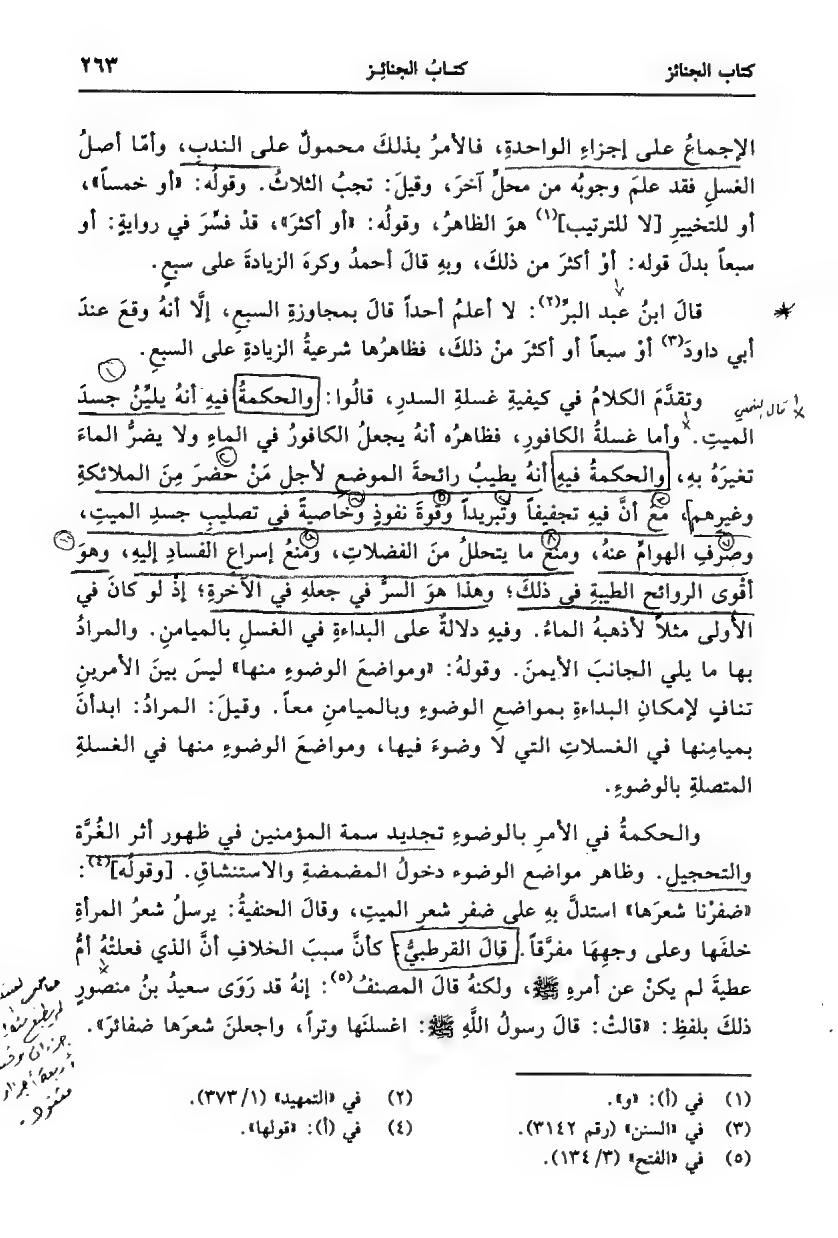 كتاب الجنائز كتـابُ الجنائِـز ٢٦٣
الإجماعُ على إجزاءِ الواحدةِ، فالأمرُ بذلكَ محمولٌ على الندبِ، وأمَّا أصلُ
الغسلِ فقد علمَ وجوبُه من محلٍّ آخرَ، وقيلَ: تجبُ الثلاثُ. وقولُه: «أو خمساً»،
أو للتخييرِ [لا للترتيب](١) هوَ الظاهرُ، وقولُه: «أو أكثرَ»، قدْ فسِّرَ في روايةٍ: أو
سبعاً بدلَ قوله: أوْ أكثرَ من ذلكَ، وبهِ قالَ أحمدُ وكرهَ الزيادةَ على سبعٍ.
قالَ ابنُ عبد البرِّ(٢): لا أعلمُ أحداً قالَ بمجاوزةِ السبعِ، إلَّا أنهُ وقعَ عندَ
أبي داودَ(٣) أوْ سبعاً أو أكثرَ منْ ذلكَ، فظاهرُها شرعيةُ الزيادةِ على السبعِ.
وتقدَّمَ الكلامُ في كيفيةِ غسلةِ السدرِ، قالُوا: والحكمةُ فيهِ أنهُ يليِّنُ جسدَ
الميتِ. وأما غسلةُ الكافورِ، فظاهرُه أنهُ يجعلُ الكافورُ في الماءِ ولا يضرُّ الماءَ
تغيرَهُ بهِ، والحكمةُ فيهِ أنهُ يطيبُ رائحةَ الموضعِ لأجلِ مَنْ حضرَ مِنَ الملائكةِ
وغيرهم، معَ أنَّ فيهِ تجفيفاً وتبريداً وقوةَ نفوذٍ وخاصيةً في تصليبِ جسدِ الميتِ،
وصرفِ الهوامِّ عنهُ، ومنعُ ما يتحللُ منَ الفضلاتِ، ومنعُ إسراعِ الفسادِ إليهِ، وهوَ
أقْوى الروائحِ الطيبةِ في ذلكَ؛ وهذا هوَ السرُّ في جعلهِ في الآخرةِ؛ إذْ لو كانَ في
الأولى مثلاً لأذهبهُ الماءُ. وفيهِ دلالةٌ على البداءةِ في الغسلِ بالميامنِ. والمرادُ
بها ما يلي الجانبَ الأيمنَ. وقولهُ: «ومواضعَ الوضوءِ منها» ليسَ بينَ الأمرينِ
تنافٍ لإمكانِ البداءةِ بمواضعِ الوضوءِ وبالميامنِ معاً. وقيلَ: المرادُ: ابدأنَ
بميامِنها في الغسلاتِ التي لا وضوءَ فيها، ومواضعَ الوضوءِ منها في الغسلةِ
المتصلةِ بالوضوءِ.
والحكمةُ في الأمرِ بالوضوءِ تجديد سمة المؤمنين في ظهور أثر الغُرَّة
والتحجيل. وظاهر مواضع الوضوء دخولُ المضمضةِ والاستنشاقِ. [وقولُه](٤):
«ضفرْنا شعرَها» استدلَّ بهِ على ضفرِ شعرِ الميتِ، وقالَ الحنفيةُ: يرسلُ شعرُ المرأةِ
خلفَها وعلى وجهِهَا مفرَّقاً. قالَ القرطبيُّ: كأنَّ سببَ الخلافِ أنَّ الذي فعلتْهُ أمُّ
عطيةَ لم يكنْ عن أمرهِ ﷺ، ولكنهُ قالَ المصنفُ(٥): إنهُ قد رَوَى سعيدُ بنُ منصورٍ
ذلكَ بلفظِ: «قالتْ: قالَ رسولُ اللَّهِ ﷺ: اغسلنَها وتراً، واجعلنَ شعرَها ضفائرَ».
(١) في (أ): «و».
(٢) في «التمهيد» (١/ ٣٧٣).
(٣) في «السنن» (رقم ٣١٤٢).
(٤) في (أ): «قولها».
(٥) في «الفتح» (٣/ ١٣٤).